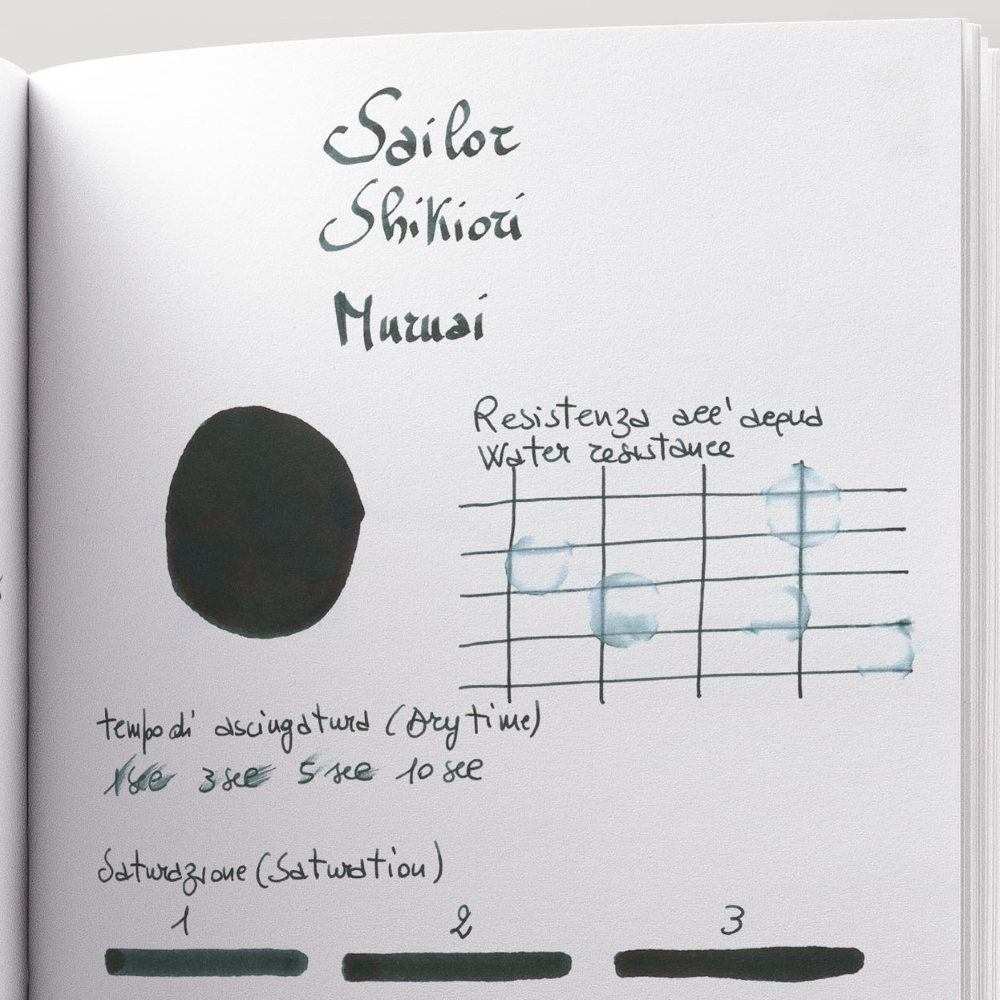 Sailor
Shikiori
Muruai
Resistenza all'acqua
Water resistance
tempo di asciugatura (Dry time)
1 sec 3 sec 5 sec 10 sec
Saturazione (Saturation)
1 2 3